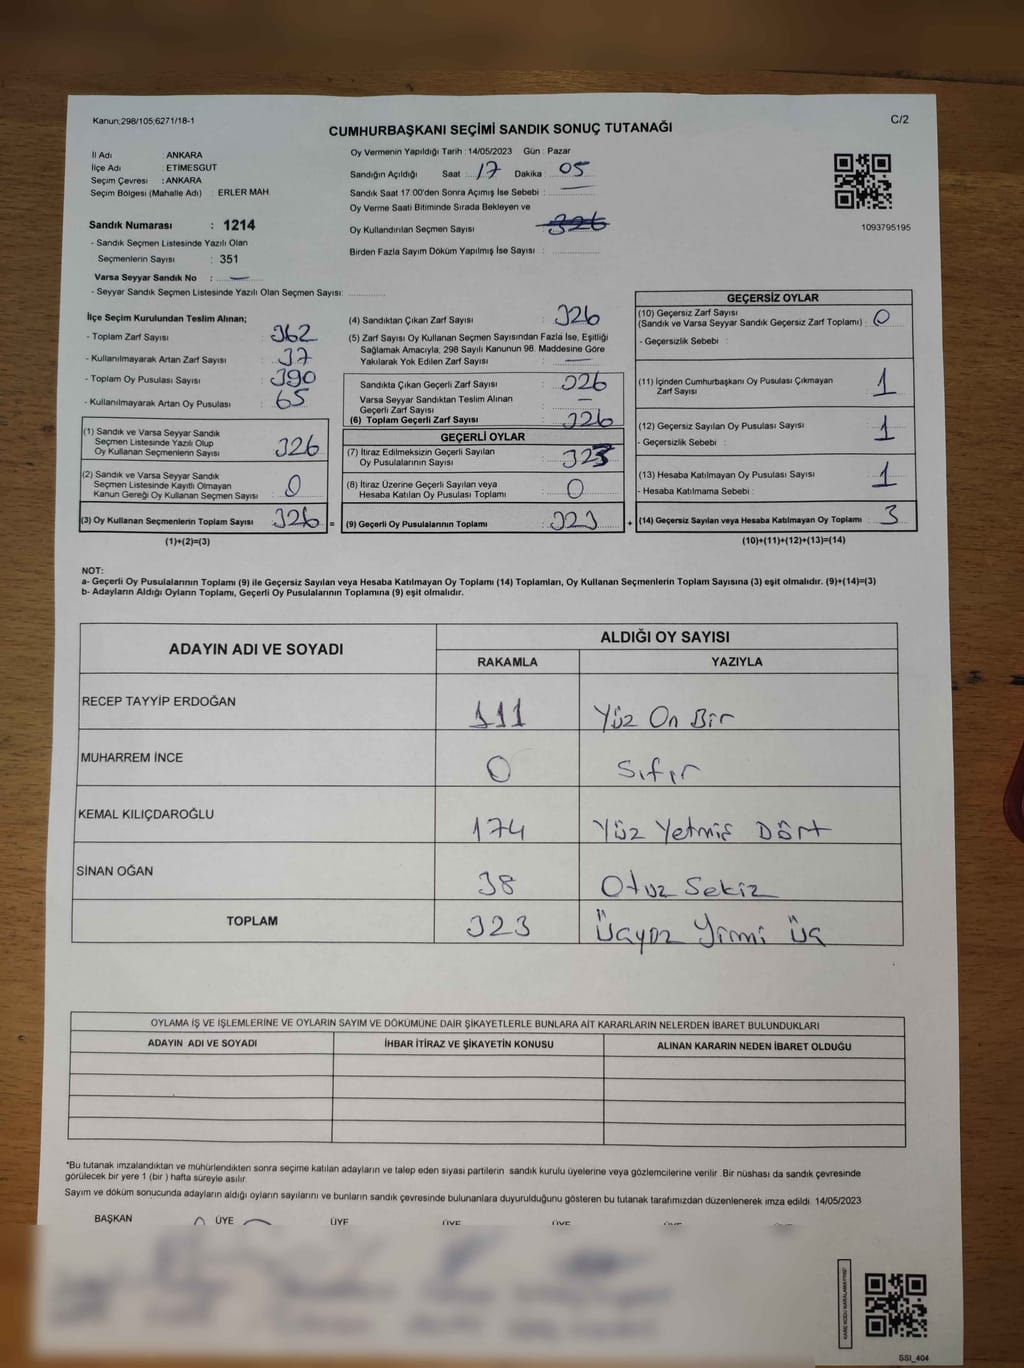 Kanun;298/105;6271/18-1
C/2
CUMHURBAŞKANI SEÇİMİ SANDIK SONUÇ TUTANAĞI
İl Adı : ANKARA
İlçe Adı : ETİMESGUT
Seçim Çevresi : ANKARA
Seçim Bölgesi (Mahalle Adı) : ERLER MAH.
Sandık Numarası : 1214
- Sandık Seçmen Listesinde Yazılı Olan
Seçmenlerin Sayısı : 351
Varsa Seyyar Sandık No : —
- Seyyar Sandık Seçmen Listesinde Yazılı Olan Seçmen Sayısı:
Oy Vermenin Yapıldığı Tarih : 14/05/2023 Gün : Pazar
Sandığın Açıldığı Saat : 17 Dakika : 05
Sandık Saat 17:00'den Sonra Açımış İse Sebebi : —
Oy Verme Saati Bitiminde Sırada Bekleyen ve
Oy Kullandırılan Seçmen Sayısı : 326
Birden Fazla Sayım Döküm Yapılmış İse Sayısı :
1093795195
İlçe Seçim Kurulundan Teslim Alınan;
- Toplam Zarf Sayısı : 362
- Kullanılmayarak Artan Zarf Sayısı : 37
- Toplam Oy Pusulası Sayısı : 390
- Kullanılmayarak Artan Oy Pusulası : 65
(1) Sandık ve Varsa Seyyar Sandık
Seçmen Listesinde Yazılı Olup
Oy Kullanan Seçmenlerin Sayısı : 326
(2) Sandık ve Varsa Seyyar Sandık
Seçmen Listesinde Kayıtlı Olmayan
Kanun Gereği Oy Kullanan Seçmen Sayısı : 0
(3) Oy Kullanan Seçmenlerin Toplam Sayısı : 326 =
(1)+(2)=(3)
(4) Sandıktan Çıkan Zarf Sayısı : 326
(5) Zarf Sayısı Oy Kullanan Seçmen Sayısından Fazla İse, Eşitliği
Sağlamak Amacıyla, 298 Sayılı Kanunun 98. Maddesine Göre
Yakılarak Yok Edilen Zarf Sayısı : —
Sandıkta Çıkan Geçerli Zarf Sayısı : 326
Varsa Seyyar Sandıktan Teslim Alınan
Geçerli Zarf Sayısı : —
(6) Toplam Geçerli Zarf Sayısı : 326
GEÇERLİ OYLAR
(7) İtiraz Edilmeksizin Geçerli Sayılan
Oy Pusulalarının Sayısı : 323
(8) İtiraz Üzerine Geçerli Sayılan veya
Hesaba Katılan Oy Pusulası Toplamı : 0
(9) Geçerli Oy Pusulalarının Toplamı : 323 +
GEÇERSİZ OYLAR
(10) Geçersiz Zarf Sayısı
(Sandık ve Varsa Seyyar Sandık Geçersiz Zarf Toplamı) : 0
- Geçersizlik Sebebi :
(11) İçinden Cumhurbaşkanı Oy Pusulası Çıkmayan
Zarf Sayısı : 1
(12) Geçersiz Sayılan Oy Pusulası Sayısı : 1
- Geçersizlik Sebebi :
(13) Hesaba Katılmayan Oy Pusulası Sayısı : 1
- Hesaba Katılmama Sebebi :
(14) Geçersiz Sayılan veya Hesaba Katılmayan Oy Toplamı : 3
(10)+(11)+(12)+(13)=(14)
NOT:
a- Geçerli Oy Pusulalarının Toplamı (9) ile Geçersiz Sayılan veya Hesaba Katılmayan Oy Toplamı (14) Toplamları, Oy Kullanan Seçmenlerin Toplam Sayısına (3) eşit olmalıdır. (9)+(14)=(3)
b- Adayların Aldığı Oyların Toplamı, Geçerli Oy Pusulalarının Toplamına (9) eşit olmalıdır.
ADAYIN ADI VE SOYADI
ALDIĞI OY SAYISI
RAKAMLA YAZIYLA
RECEP TAYYİP ERDOĞAN 111 Yüz On Bir
MUHARREM İNCE 0 Sıfır
KEMAL KILIÇDAROĞLU 174 Yüz Yetmiş Dört
SİNAN OĞAN 38 Otuz Sekiz
TOPLAM 323 Üçyüz Yirmi Üç
OYLAMA İŞ VE İŞLEMLERİNE VE OYLARIN SAYIM VE DÖKÜMÜNE DAİR ŞİKAYETLERLE BUNLARA AİT KARARLARIN NELERDEN İBARET BULUNDUKLARI
ADAYIN ADI VE SOYADI İHBAR İTİRAZ VE ŞİKAYETİN KONUSU ALINAN KARARIN NEDEN İBARET OLDUĞU
*Bu tutanak imzalandıktan ve mühürlendikten sonra seçime katılan adayların ve talep eden siyasi partilerin sandık kurulu üyelerine veya gözlemcilerine verilir .Bir nüshası da sandık çevresinde
görülecek bir yere 1 (bir ) hafta süreyle asılır.
Sayım ve döküm sonucunda adayların aldığı oyların sayılarını ve bunların sandık çevresinde bulunanlara duyurulduğunu gösteren bu tutanak tarafımızdan düzenlenerek imza edildi. 14/05/2023
BAŞKAN ÜYE ÜYE ÜYE ÜYE
KARE KODU KARALAMAYINIZ!
SSI_404